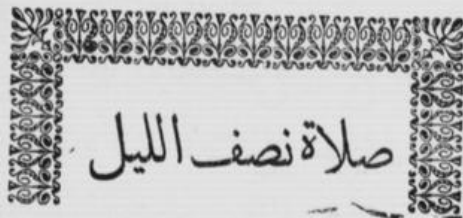 صلاة نصف الليل